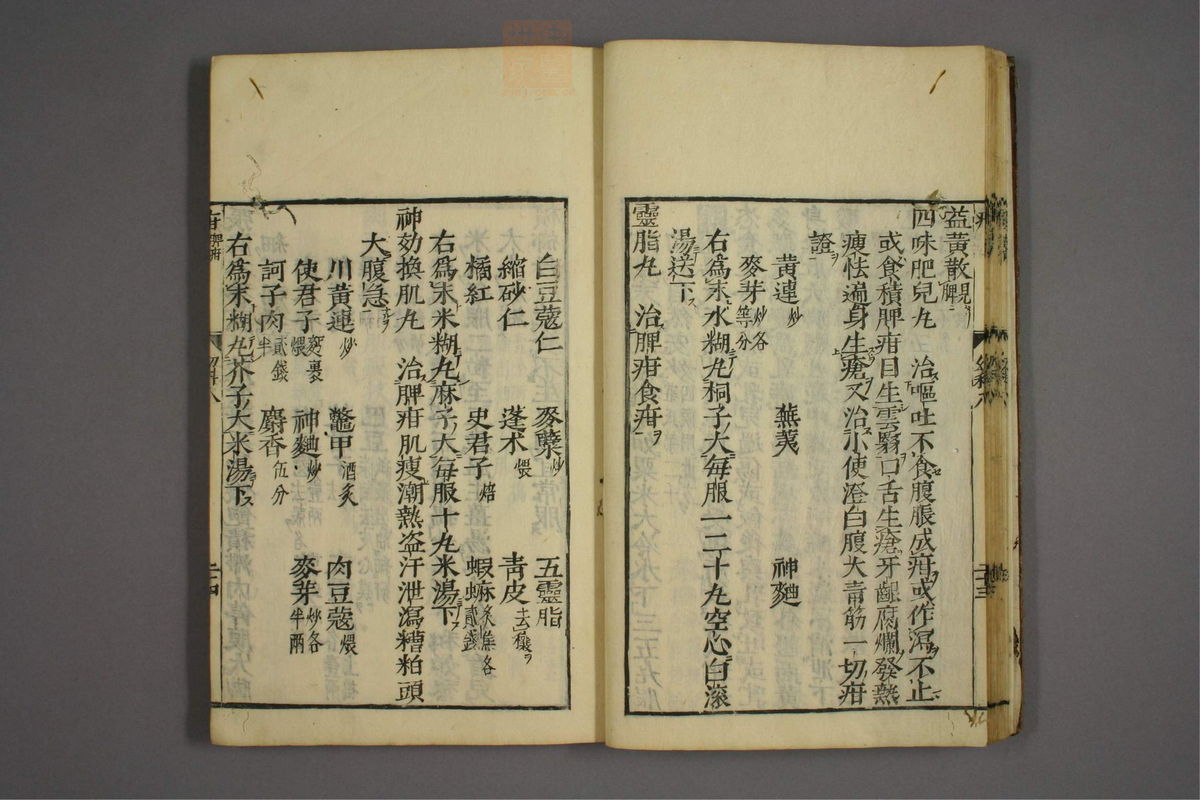 益黃散見脾
四味肥兒丸　治嘔吐不食腹脹成疳或作瀉不止
或食積脾疳目生雲翳口舌生瘡牙齦腐爛發熱
瘦怯遍身生瘡又治小便澄白腹大青筋一切疳
證
黃連炒　蕪荑　神麯
麥芽炒各等分
右為末水糊丸桐子大每服一二十丸空心白滾
湯送下
靈脂丸　治脾疳食疳
白豆蔻仁　麥蘗炒　五靈脂
縮砂仁　蓬朮煨　青皮去穰
橘紅　史君子焙　蝦蟆炙焦各貳錢
右為末米糊丸麻子大每服十丸米湯下
神効換肌丸　治脾疳肌瘦潮熱盗汗泄瀉糟粕頭
大腹急
川黃連炒　鼈甲酒炙　肉豆蔻煨
使君子麪裹煨　神麯炒　麥芽炒各半兩
訶子肉貳錢半　麝香伍分
右為末糊丸芥子大米湯下
二十四